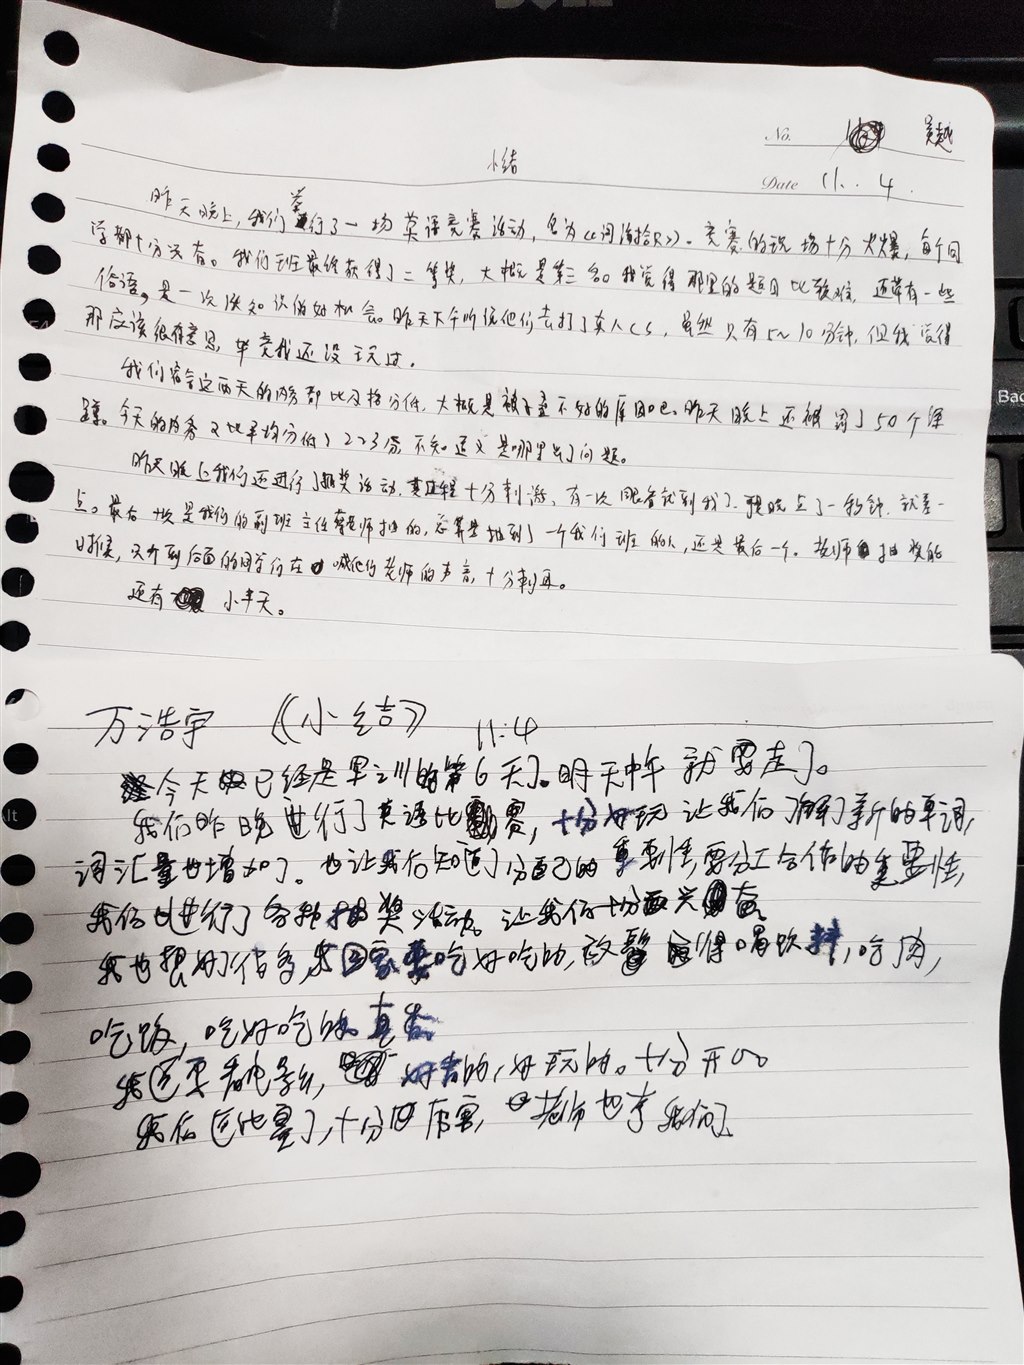 DELL
No.
吴越
小结
Date 11. 4.
昨天晚上,我们举行了一场英语竞赛活动,名为《词海拾贝》。竞赛的现场十分火爆,每个同
学都十分兴奋。我们班最终获得了二等奖,大概是第三名。我觉得那里的题目比较难,还带有一些
俗语,是一次涨知识的好机会。昨天下午听说他们去打了真人CS,虽然只有5~10分钟,但我觉得
那应该很有意思,毕竟我还没玩过。
我们宿舍这两天的内务都比及格分低,大概是被子叠不好的原因吧。昨天晚上还被罚了50个深
蹲。今天的内务又比平均分低了2~3分,不知道又是哪里出了问题。
昨天晚上我们还进行了抽奖活动,其过程十分刺激,有一次眼看就到我了,
点。最后一次是我们的副班主任老师抽的,总算是抽到了一个我们班的人,还是最后一个。老师抽奖的
时候,又听到后面的同学们在喊他们老师的声音,十分刺耳。
还有小半天。
万浩宇 《小结》 11.4
今天已经是军训的第6天了。明天中午就要走了。
我们昨晚进行了英语比赛,十分好玩让我们了解了新的单词,
词汇量也增加了。也让我们知道了分自己的重要性,要分工合作的重要性,
我们也进行了各种抽奖活动。让我们十分兴奋。
我也想好了很多,我回家要吃好吃的,喝饮料,吃肉,
吃饭,吃好吃的真香
我还要看电影,好看的,好玩的。十分开心
我们还比赛了,十分厉害,老师也夸我们了。
Alt
Bac